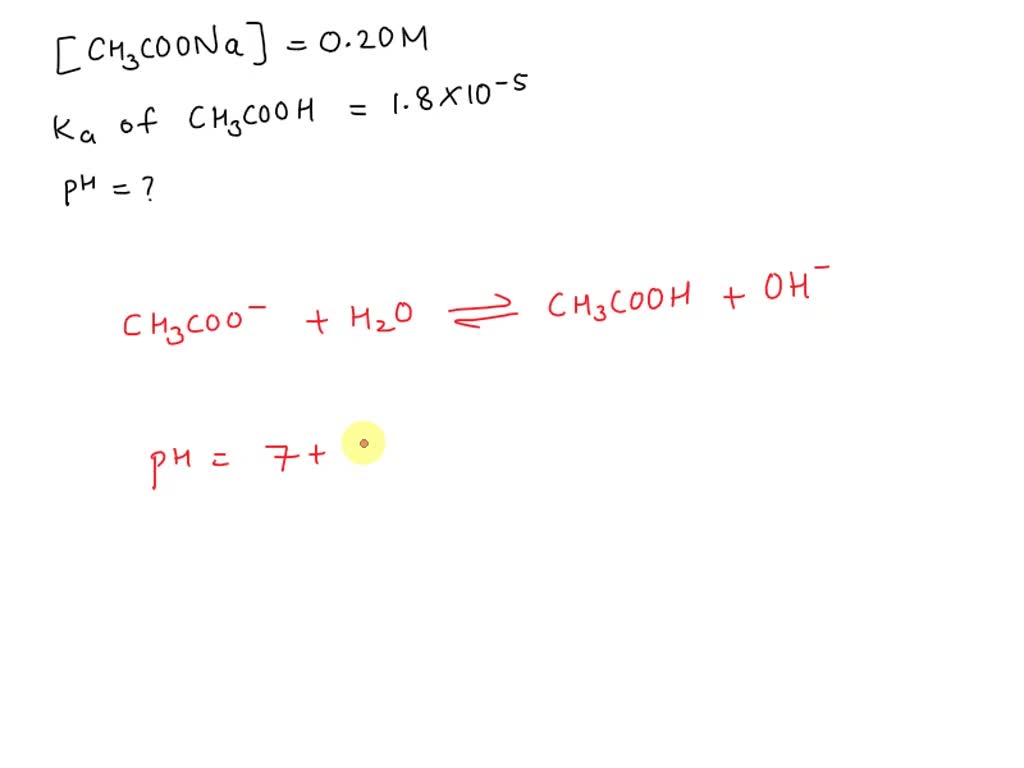 [CH₃COONa] = 0.20M
Ka of CH₃COOH = 1.8×10⁻⁵
pH = ?
CH₃COO⁻ + H₂O ⇌ CH₃COOH + OH⁻
pH = 7+